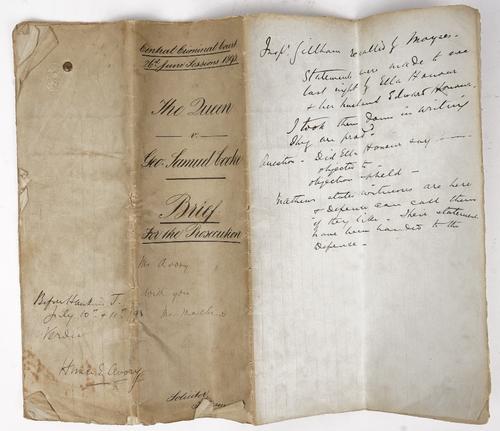 Central Criminal Court
26th June Sessions 1893
The Queen
v.
Geo. Samuel Cooke
Brief
For the Prosecution
Mr Avory
with you
Mr. Mathews
Before Hawkins J.
July 10th & 11th /93
Horace E. Avory
Solicitor
Inspr. Gillham recalled by
Statements were made to me
last night by Ella Honour
& her husband Edward Honour.
I took them down in writing
They are prodd.
Question - Did Ella Honour say
objected to -
objection upheld -
Mathews states witnesses are here
& Defence can call them
if they like - Their statements
have been handed to the
Defence -